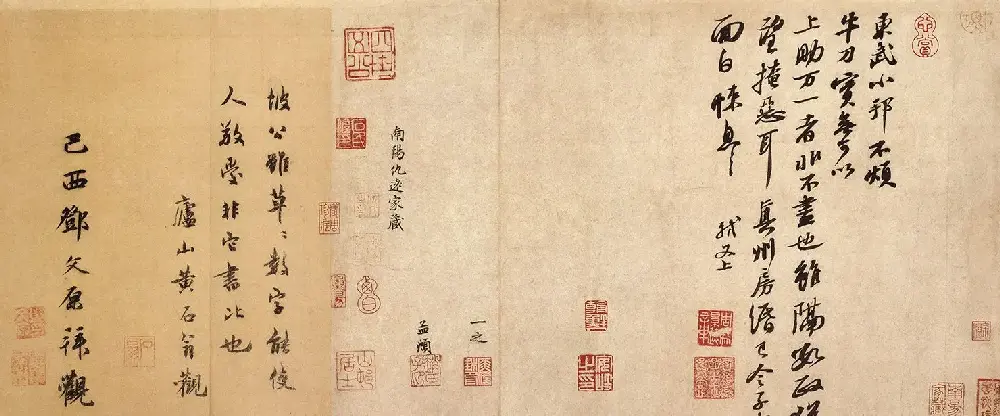 東武小邦不煩
牛刀實無可以
上助万一者非不盡也雖隔數政
望掩惡耳 真州房緡已令子
面白悚息 軾又上
南陽仇遠家藏
一之
孟頫
坡公雖草〻數字能使
人敬愛非它書比也
廬山黃石翁觀
己酉鄧文原拜觀